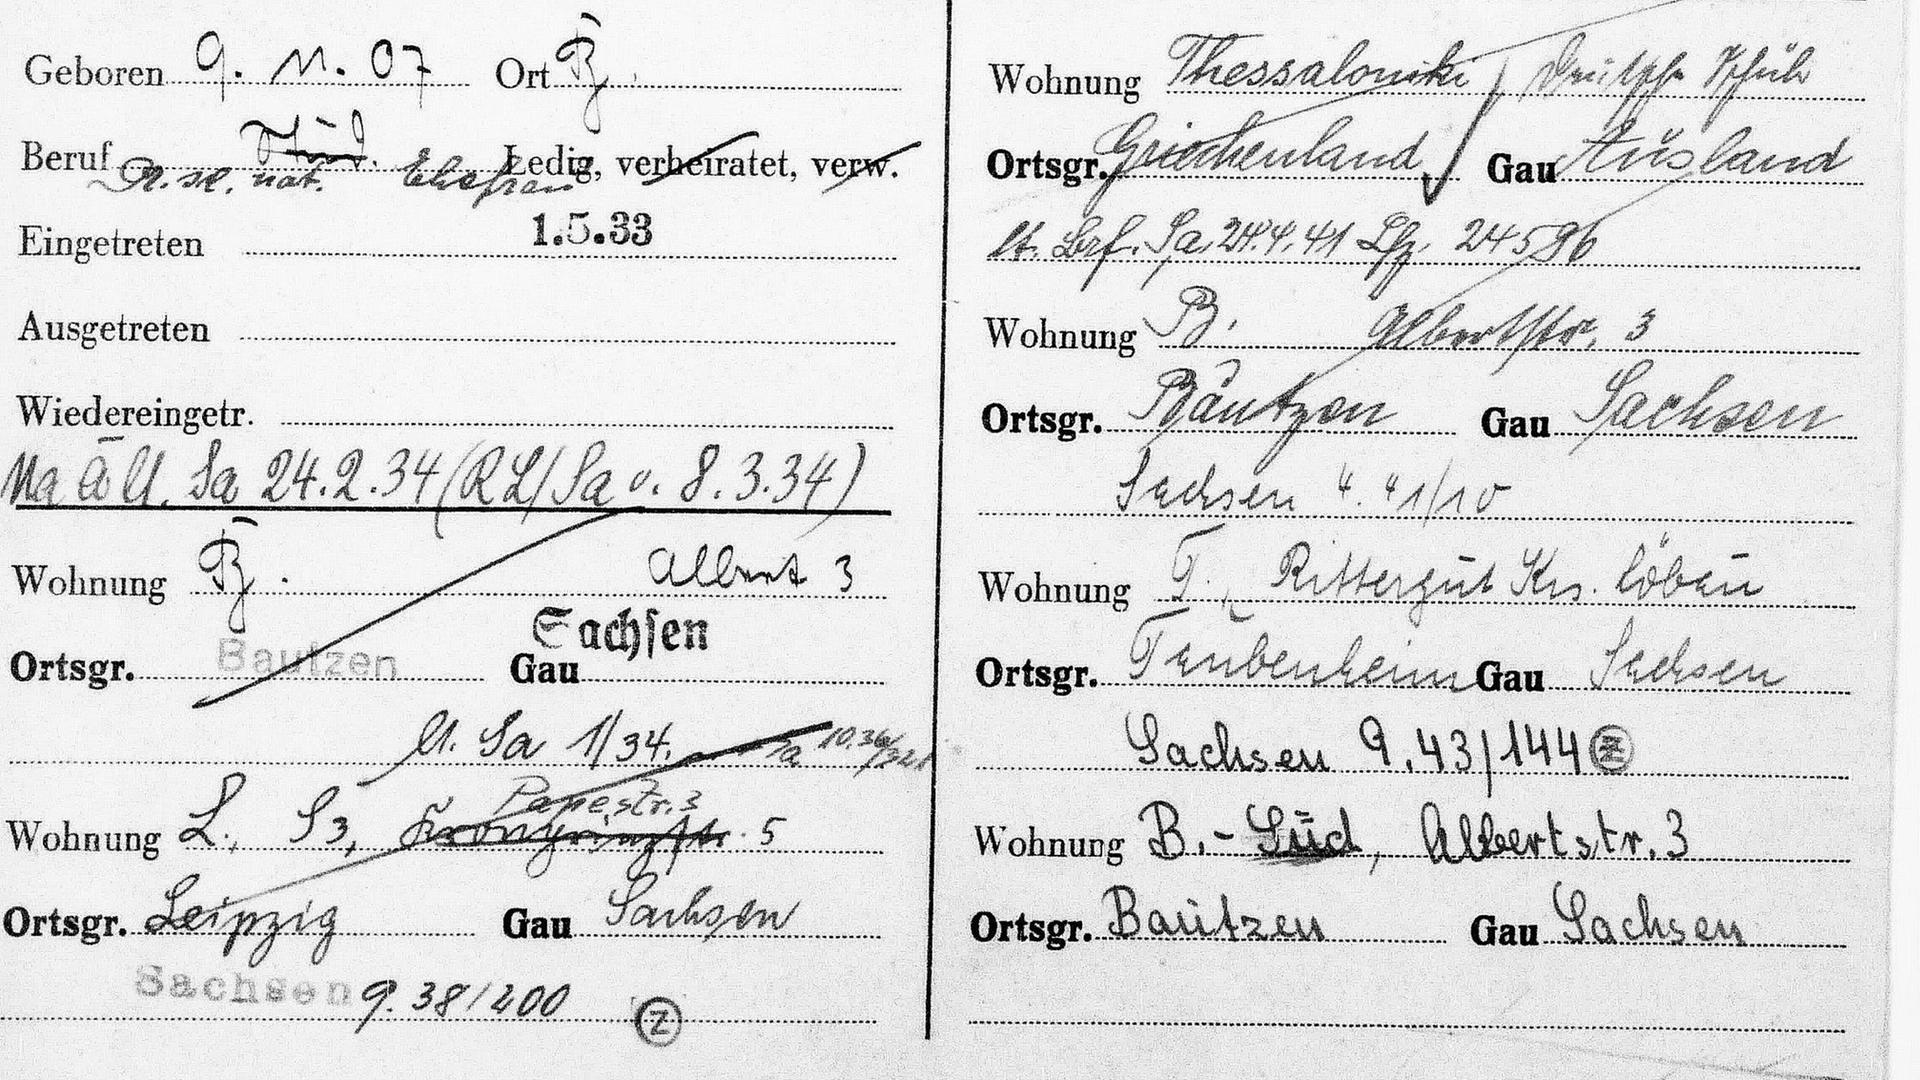 Geboren 9. 11. 07 Ort B.
Beruf Stud. Ledig, verheiratet, verw.
Dr. sc. nat. Ehefrau
Eingetreten 1.5.33
Ausgetreten
Wiedereingetr.
Sa 24.2.34 (RL/Sa v. 8.3.34)
Wohnung B. Albert 3
Ortsgr. Bautzen Gau Sachsen
Sa 1/34.
Papestr. 3
Wohnung L., S3, 5
Ortsgr. Leipzig Gau Sachsen
Sachsen 9.38/200 Z
Wohnung Thessaloniki / Deutsche Schule
Ortsgr. Griechenland Gau Ausland
lt. Brf. Sa. 24.4.41 Lfg. 24596
Wohnung B. Albertstr. 3
Ortsgr. Bautzen Gau Sachsen
Sachsen 4. 41/10
Wohnung T., Rittergut Krs. Löbau
Ortsgr. Taubenheim Gau Sachsen
Sachsen 9.43/144 Z
Wohnung B.-Süd, Albertstr. 3
Ortsgr. Bautzen Gau Sachsen